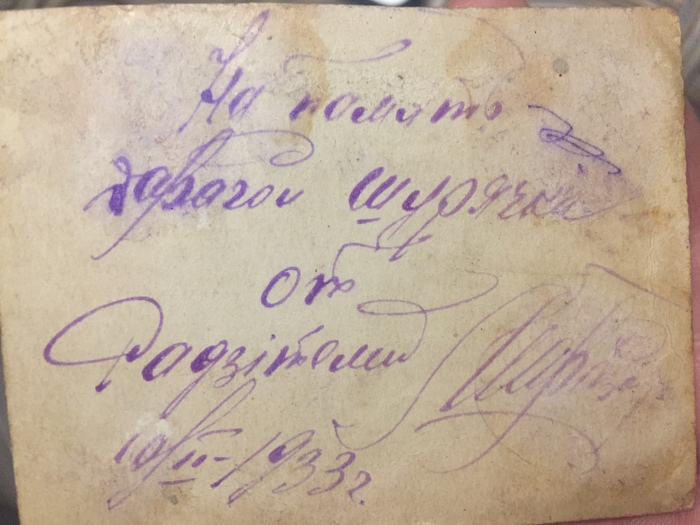 На память
дарагой Шурячки
от
Радзітелий
10/II-1933 г.